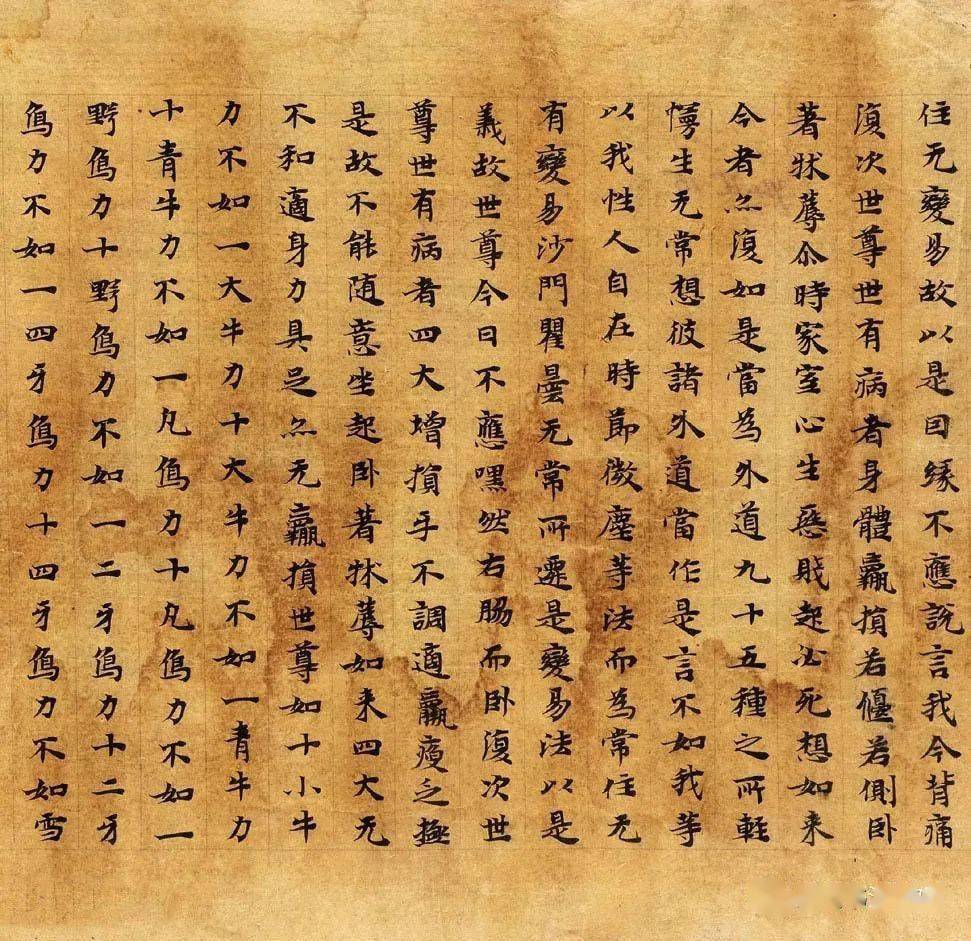 住无變易故以是因縁不應說言我今背痛
復次世尊世有病者身體羸損若偃若側臥
著牀蓐尒時家室心生惡賤起必死想如来
今者亦復如是當為外道九十五種之所輕
慢生无常想彼諸外道當作是言不如我等
以我性人自在時節微塵等法而為常住无
有變易沙門瞿曇无常所遷是變易法以是
義故世尊今日不應嘿然右脇而卧復次世
尊世有病者四大增損乎不調適羸瘦乏極
是故不能随意坐起卧著牀蓐如来四大无
不和適身力具足亦无羸損世尊如十小牛
力不如一大牛力十大牛力不如一青牛力
十青牛力不如一凡烏力十凡烏力不如一
野烏力十野烏力不如一二牙烏力十二牙
烏力不如一四牙烏力十四牙烏力不如雪